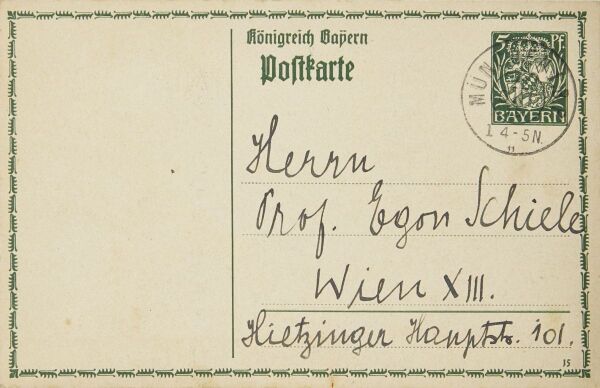 Königreich Bayern
Postkarte
5 PF.
BAYERN
MÜN
I 4-5N.
Herrn
Prof. Egon Schiele
Wien XIII.
Hietzinger Hauptstr. 101.
15